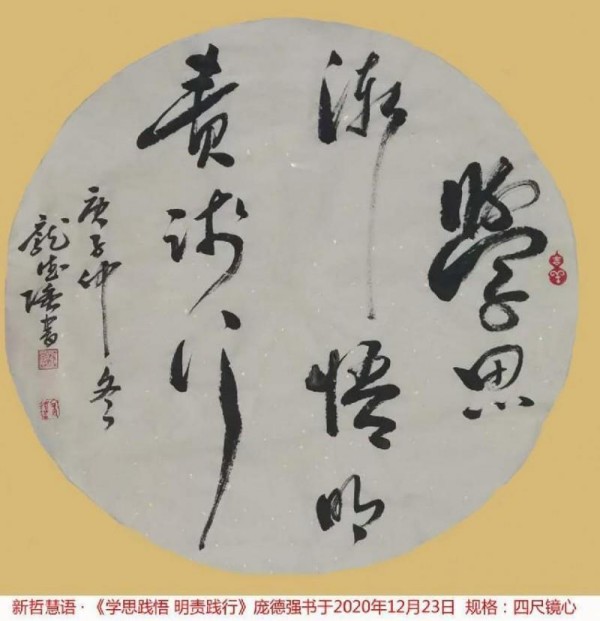 學思
践悟明
責践行
庚子仲冬
龐德强書
新哲慧语·《学思践悟 明责践行》庞德强书于2020年12月23日 规格：四尺镜心